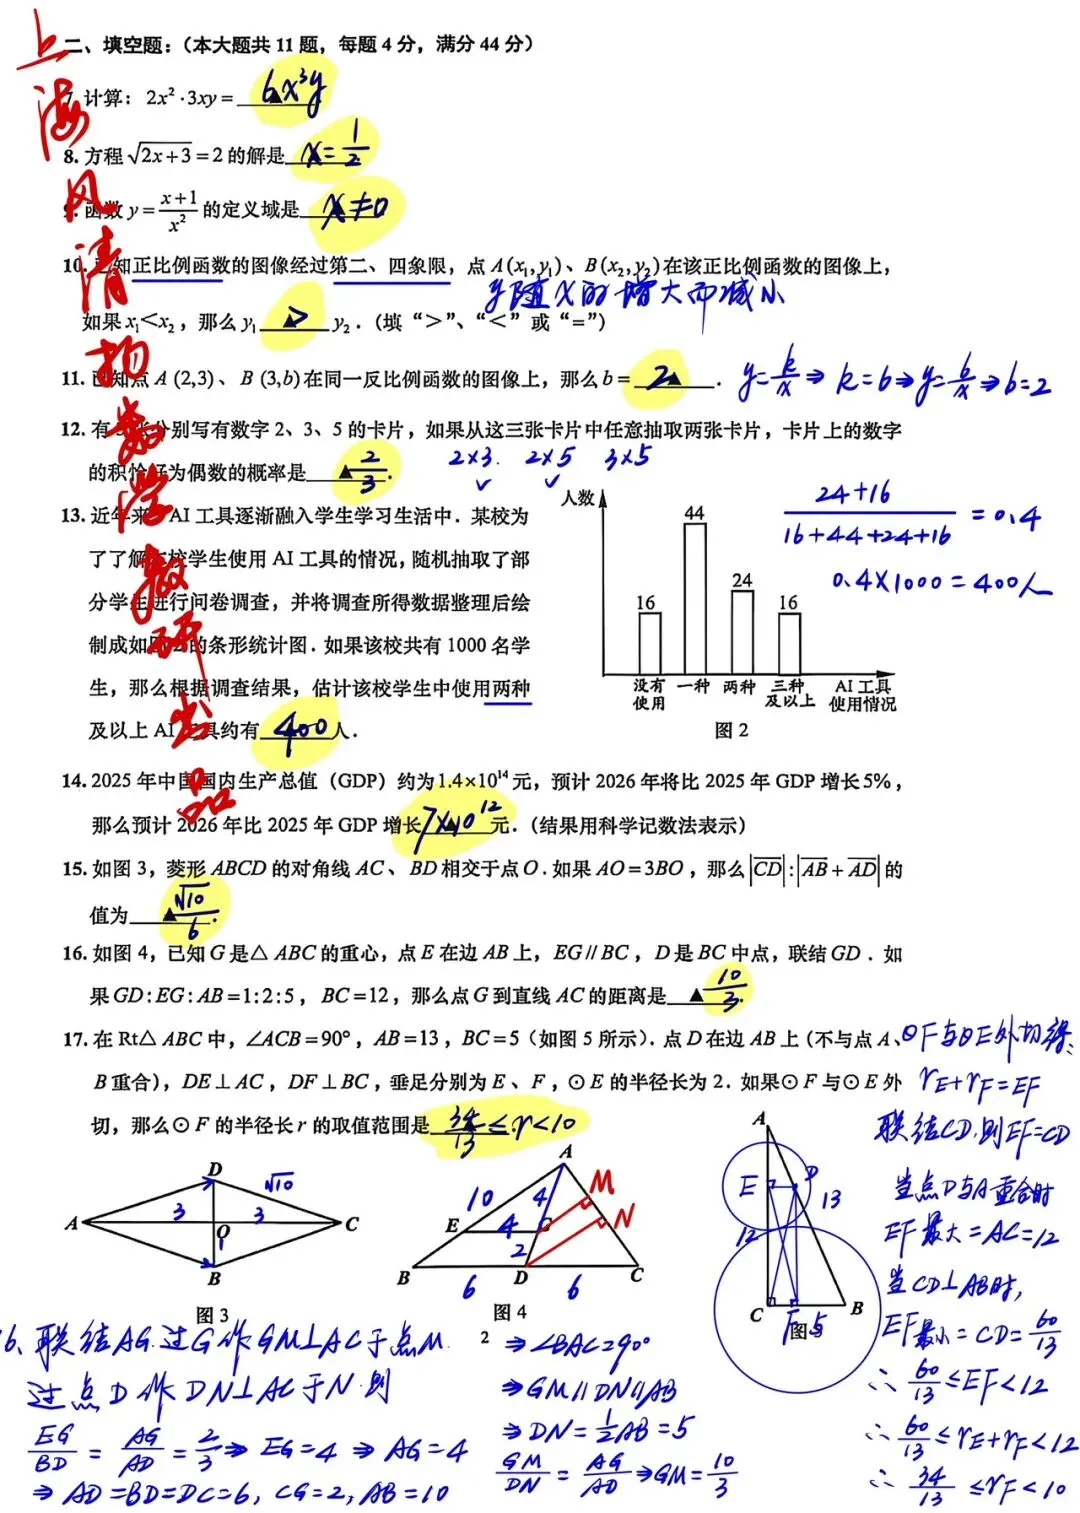 上海风清扬数学教研出品
二、填空题：（本大题共 11 题，每题 4 分，满分 44 分）
7. 计算：2x²·3xy = 6x³y
8. 方程 √(2x+3) = 2 的解是 x = 1/2
9. 函数 y = (x+1)/x² 的定义域是 x ≠ 0
10. 已知正比例函数的图像经过第二、四象限，点 A(x₁,y₁)、B(x₂,y₂)在该正比例函数的图像上，
y随x的增大而减小
如果 x₁<x₂，那么 y₁ > y₂．（填“>”、“<”或“=”）
11. 已知点 A (2,3)、B (3,b)在同一反比例函数的图像上，那么 b = 2． y=k/x ⇒ k=6 ⇒ y=6/x ⇒ b=2
12. 有 3 张分别写有数字 2、3、5 的卡片，如果从这三张卡片中任意抽取两张卡片，卡片上的数字
的积恰好为偶数的概率是 ▲ 2/3． 2×3. 2×5 3×5
✓ ✓
13. 近年来，AI 工具逐渐融入学生学习生活中．某校为
了了解本校学生使用 AI 工具的情况，随机抽取了部
分学生进行问卷调查，并将调查所得数据整理后绘
制成如图 2 的条形统计图．如果该校共有 1000 名学
生，那么根据调查结果，估计该校学生中使用两种
及以上 AI 工具约有 400 人．
人数
16 44 24 16
没有使用 一种 两种 三种及以上 AI 工具使用情况
图 2
(24+16)/(16+44+24+16) = 0.4
0.4×1000 = 400人
14. 2025 年中国国内生产总值（GDP）约为1.4×10¹⁴ 元，预计 2026 年将比 2025 年 GDP 增长 5%，
那么预计 2026 年比 2025 年 GDP 增长 7×10¹² 元．（结果用科学记数法表示）
15. 如图 3，菱形 ABCD 的对角线 AC、BD 相交于点 O．如果 AO = 3BO，那么 |CD|:|AB + AD| 的
值为 ▲ √10/6．
16. 如图 4，已知 G 是△ ABC 的重心，点 E 在边 AB 上，EG // BC，D 是 BC 中点，联结 GD．如
果 GD:EG:AB = 1:2:5，BC = 12，那么点 G 到直线 AC 的距离是 ▲ 10/3．
17. 在 Rt△ ABC 中，∠ACB = 90°，AB = 13，BC = 5（如图 5 所示）．点 D 在边 AB 上（不与点 A、
B 重合），DE ⊥ AC，DF ⊥ BC，垂足分别为 E、F，⊙ E 的半径长为 2．如果⊙ F 与⊙ E 外
切，那么⊙ F 的半径长 r 的取值范围是 34/13 ≤ r<10
⊙F与⊙E外切得：
rE+rF=EF
联结CD，则EF=CD
当点D与A重合时
EF最大=AC=12
当CD⊥AB时，
EF最小=CD=60/13
∴ 60/13 ≤EF<12
∴ 60/13 ≤rE+rF<12
∴ 34/13 ≤rF<10
D √10
A 3 O 3 C
1
B
图 3
A
10 4 M
E 4 G N
2
B 6 D 6 C
图 4
A
E D 13
12
C F 5 B
图 5
2
16. 联结AG. 过G作GM⊥AC于点M.
过点D作DN⊥AC于N. 则
EG/BD = AG/AD = 2/3 ⇒ EG=4 ⇒ AG=4
⇒ AD=BD=DC=6, CG=2, AB=10
⇒ ∠BAC=90°
⇒ GM∥DN∥AB
⇒ DN=1/2AB=5
GM/DN = AG/AD ⇒ GM=10/3